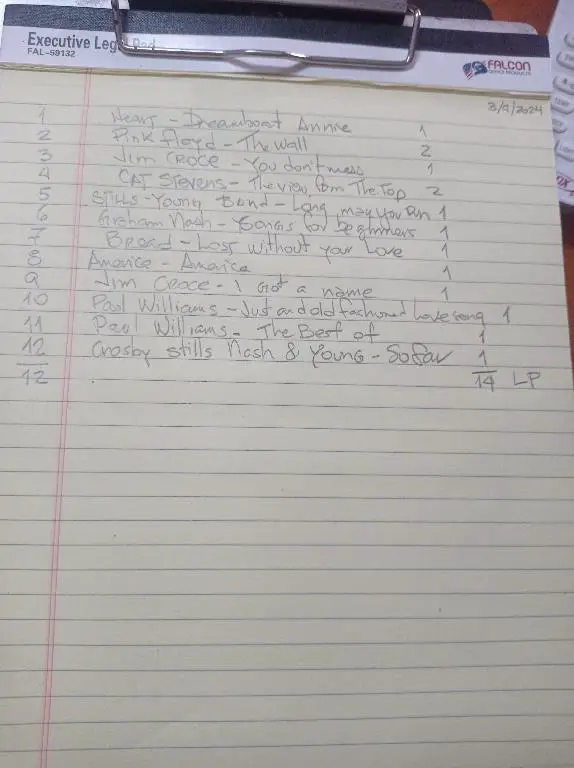 Executive Legal Pad
FAL-59132
FALCON
OFFICE PRODUCTS
3/9/2024
1 Heart - Dreamboat Annie 1
2 Pink Floyd - The Wall 2
3 Jim Croce - You don't mess 1
4 CAT Stevens - The view from The Top 2
5 Stills-Young Band - Long may you Run 1
6 Graham Nash - Songs for beginners 1
7 Bread - Loss without your Love 1
8 America - America 1
9 Jim Croce - I Got a name 1
10 Paul Williams - Just and old fashioned Love song 1
11 Paul Williams - The Best of 1
12 Crosby stills Nash & Young - So far 1
12 14 LP